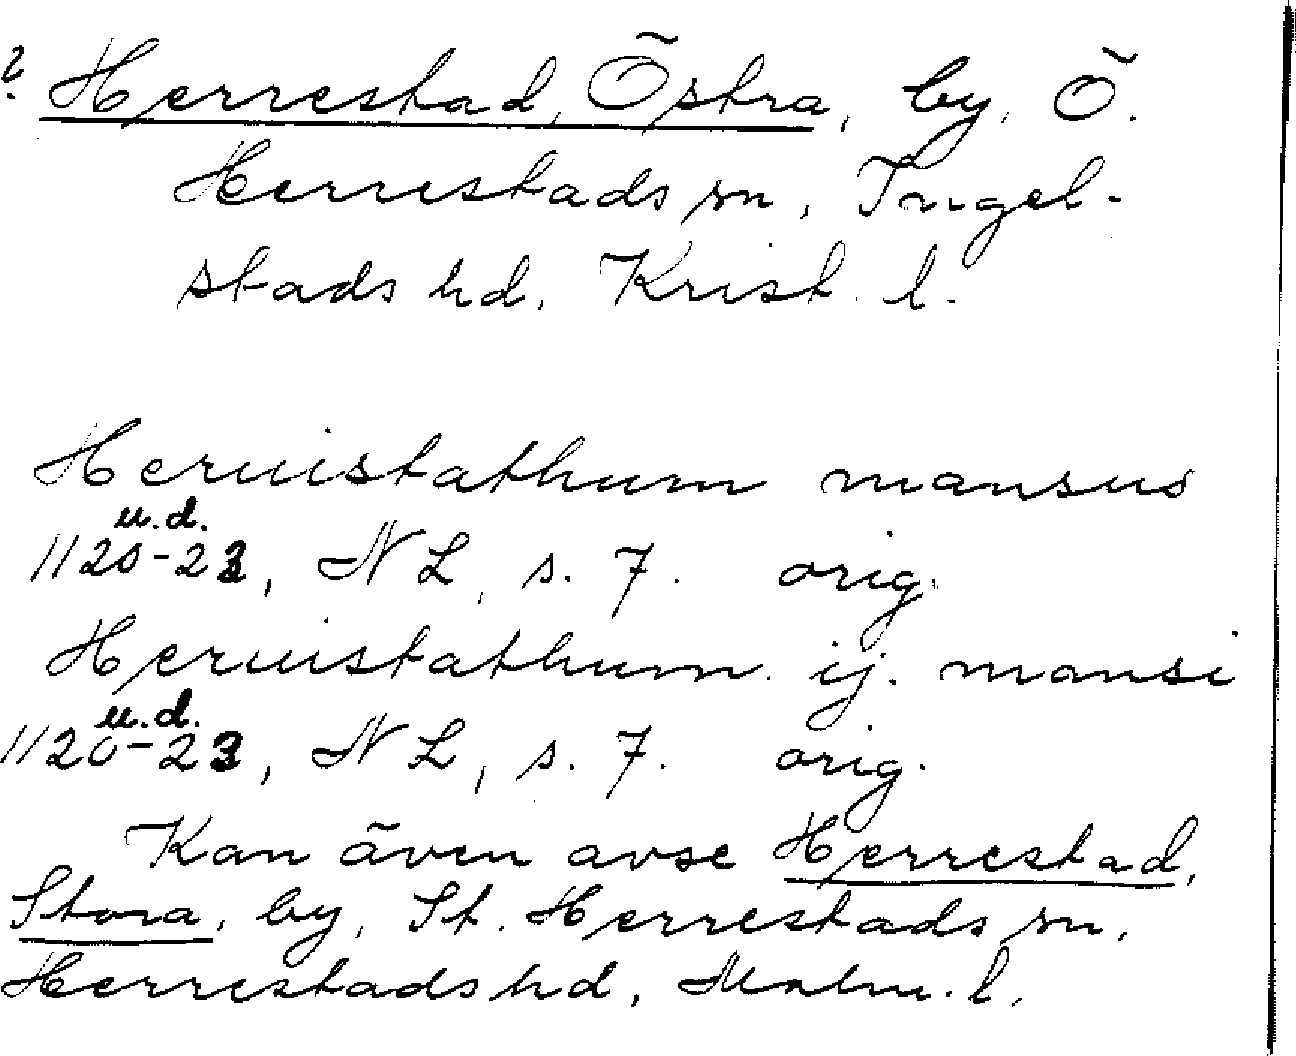 ? Herrestad, Östra, by, Ö.
Herrestads sn, Ingel-
stads hd, Krist. l.
Heruistathum mansus
u.d.
1120-23, NL, s. 7. orig.
Heruistathum ij. mansi
u.d.
1120-23, NL, s. 7. orig.
Kan även avse Herrestad,
Stora, by, St. Herrestads sn,
Herrestads hd, Malm. l.